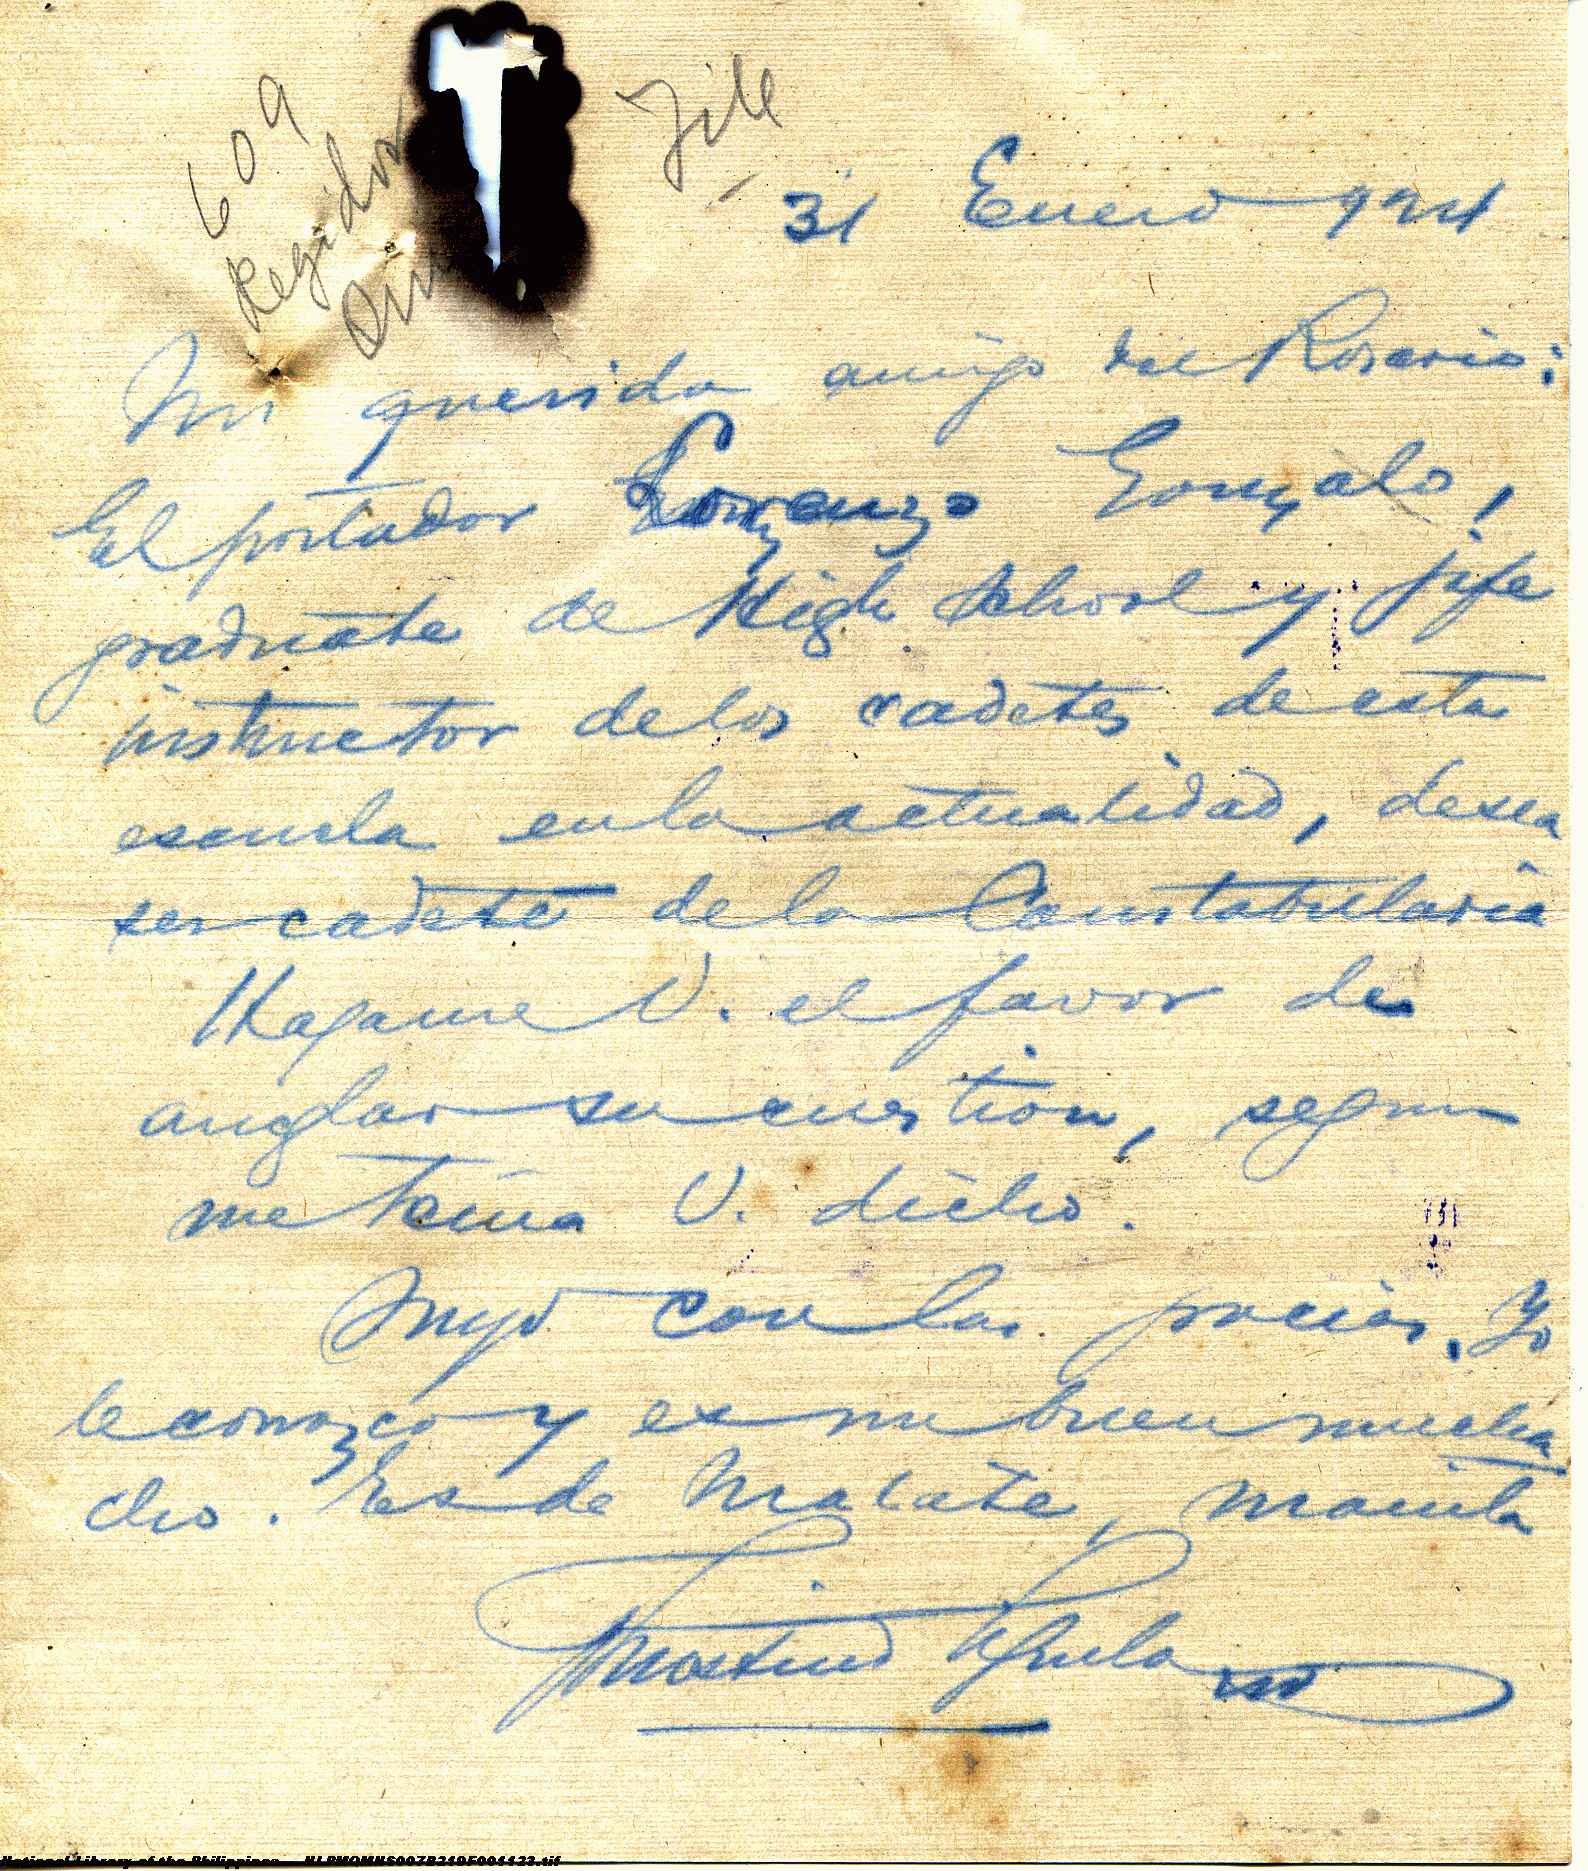 609
Regidor
File
31 Enero 924
Mi querido amigo del Rosario:
El portador Lorenzo Gonzalo,
graduate de High School y jefe
instructor de los cadetes de esta
escuela en la actualidad, desea
ser cadete de la Constabularia
Hagame V. el favor de
anglar su cuestion, segun
me tenia V. dicho.
Suyo con las gracias. Yo
le conozco y es un buen mucha
cho. Es de Malate, Manila
National Library of the Philippines